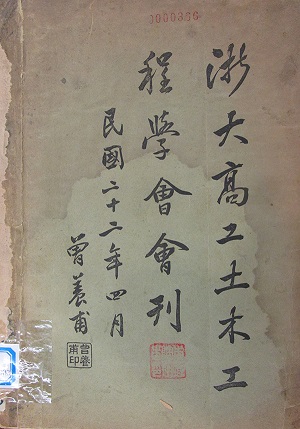 0000366
浙大高工土木工
程學會會刊
民國二十二年四月
曾養甫
曾養
甫印